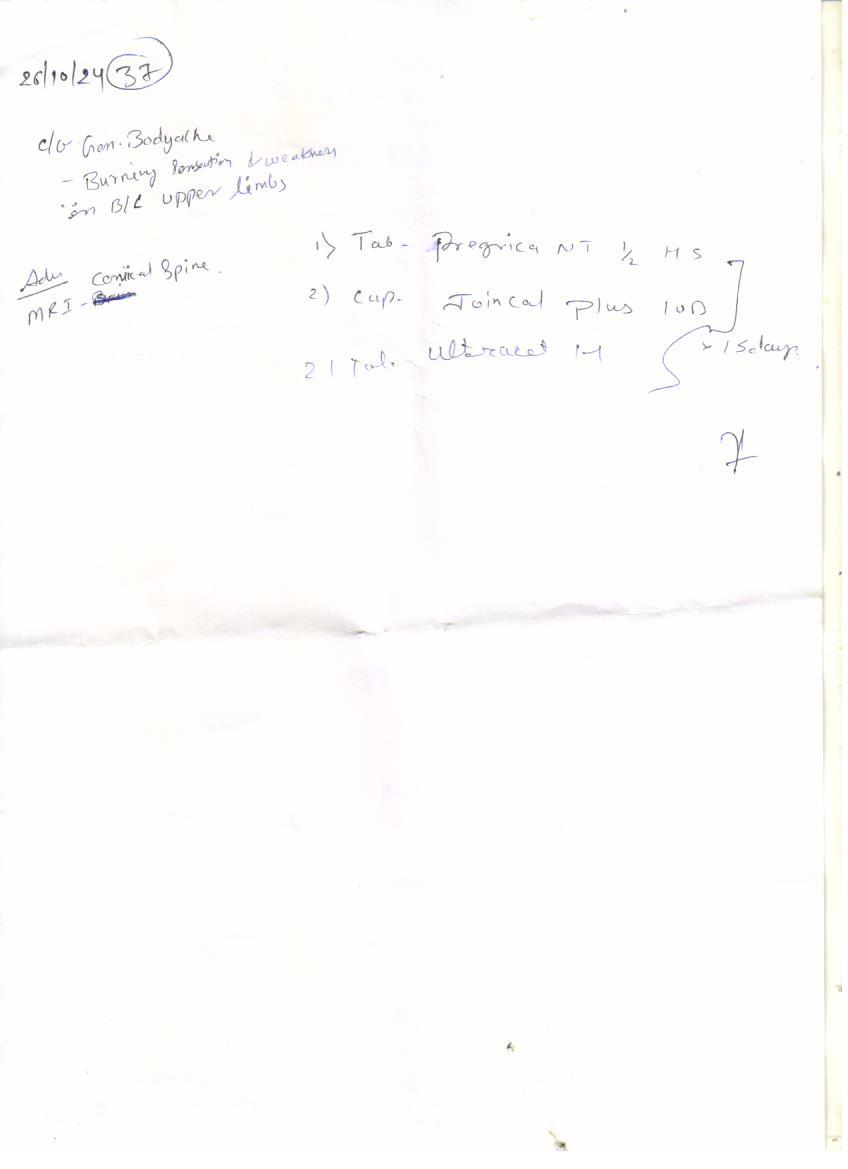 26/10/24 37
c/o Gen. Bodyache
- Burning Sensation & weakness
in B/L upper limbs
Adv Cervical Spine.
MRI -
1) Tab - Pregrica NT 1/2 HS
2) Cap. Joincal Plus 1 OD
2) Tab. Ultracet 1-1
x 15 days.